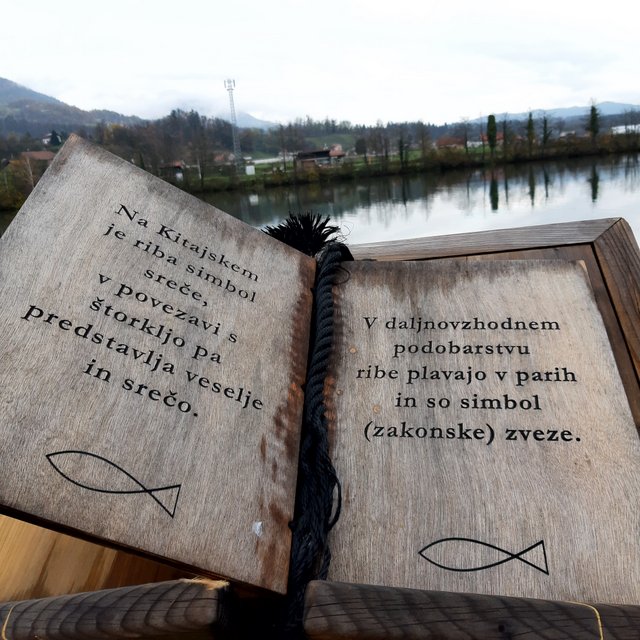 Na Kitajskem
je riba simbol
sreče,
v povezavi s
štorkljo pa
predstavlja veselje
in srečo.
V daljnovzhodnem
podobarstvu
ribe plavajo v parih
in so simbol
(zakonske) zveze.